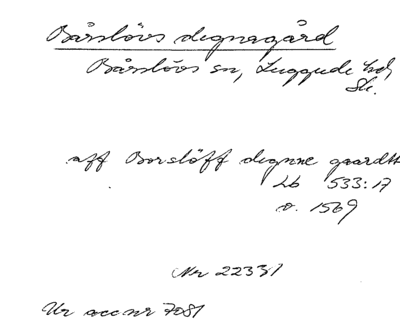 Bårslövs degnagård
Bårslövs sn, Luggude hd,
Sk.
aff Borslöff degnne gaardtt
Lb 533:17
o. 1569
Nr 22331
Ur acc nr 7081